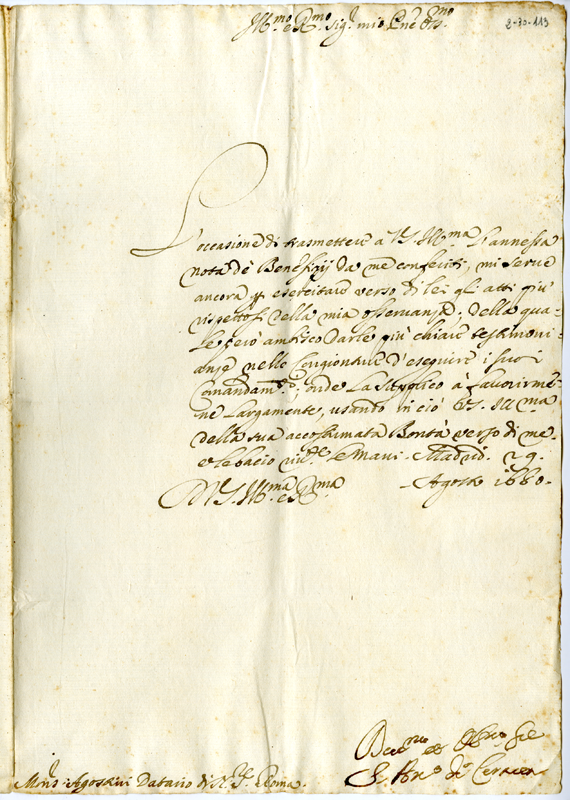 2-70-113
Ill.mo e R.mo Sig.r mio P.ne Oss.mo
L'occasione di trasmettere a V.S. Ill.ma l'annessa
nota de Benefizij da me conferiti, mi serve
ancora p esercitare verso di lei gli atti più
rispettosi della mia osservanza; della qua-
le però ambisco darle più chiare testimoni-
anze nelle congionture d'eseguire i suoi
Comandam.ti, onde la supplico à favorirme-
ne largamente, usando in ciò V.S. Ill.ma
della sua accostumata Bontà verso di me.
e le bacio le mani. Madrid. 29.
Agosto 1680.
D V.S. Ill.ma e R.ma
Mons.r Agostini Datario di N. S. Roma.